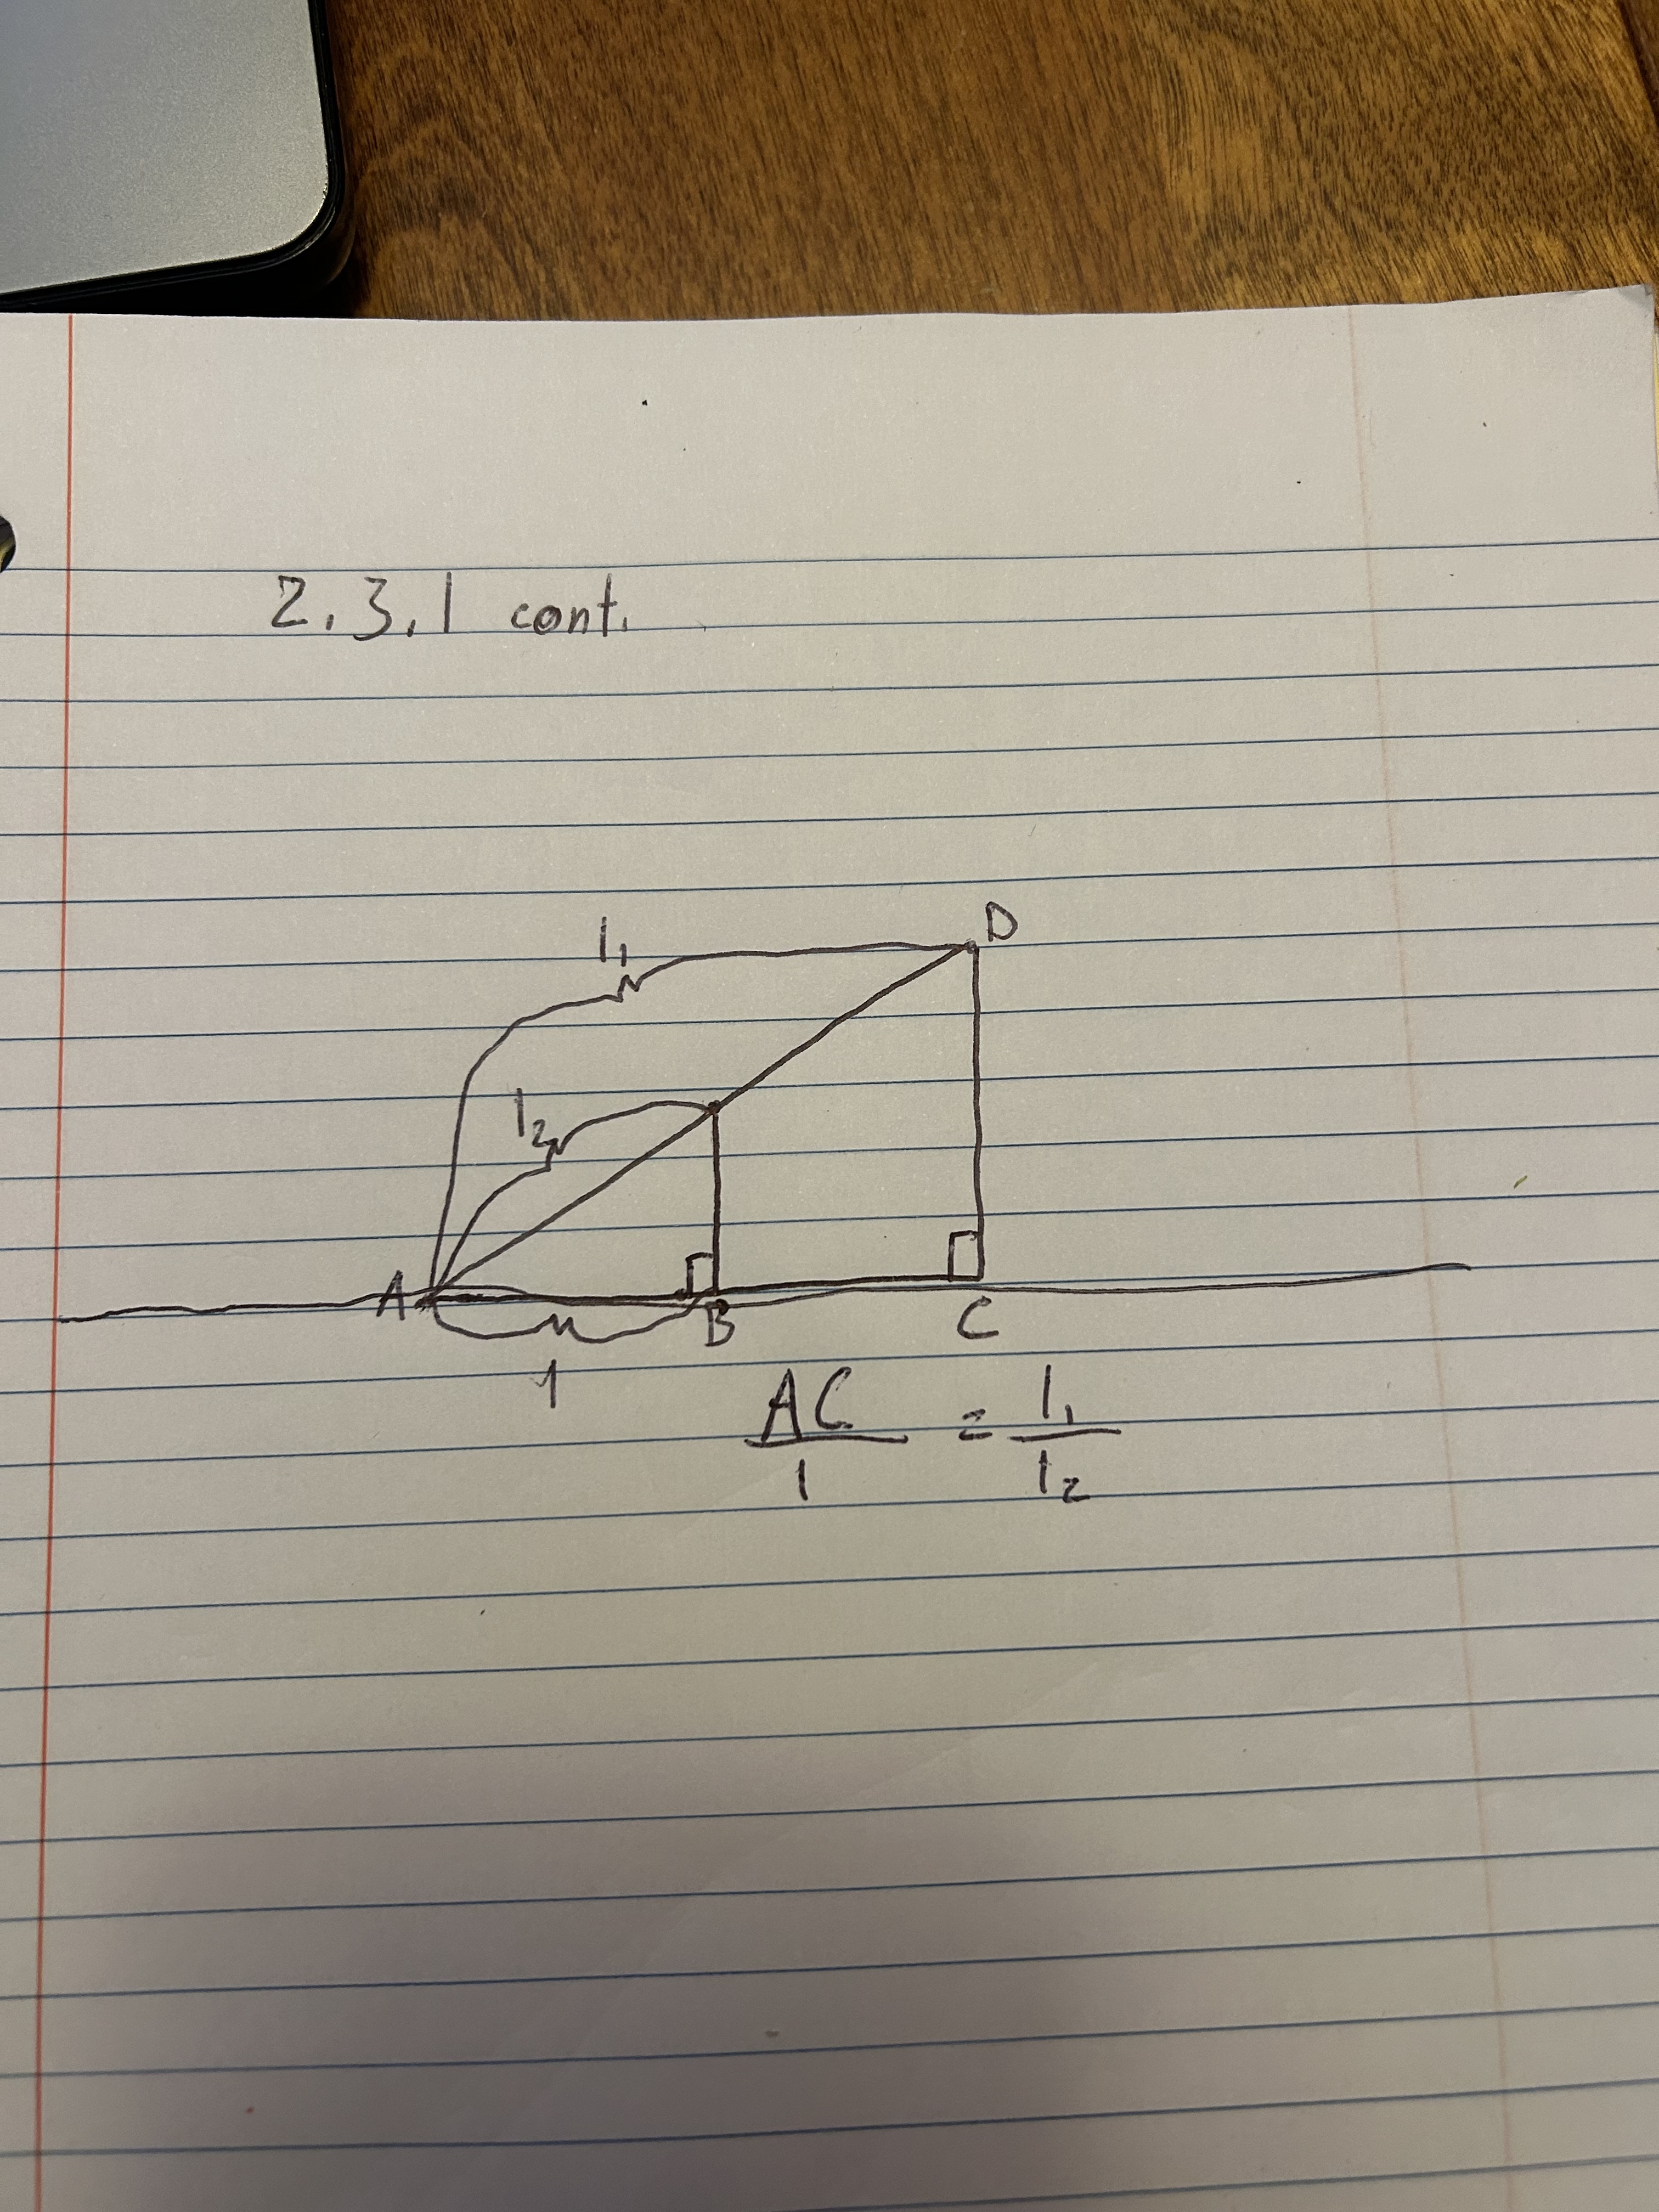 2.3.1 cont.
D
l₁
l₂
A
B
C
1
AC/1 = l₁/l₂